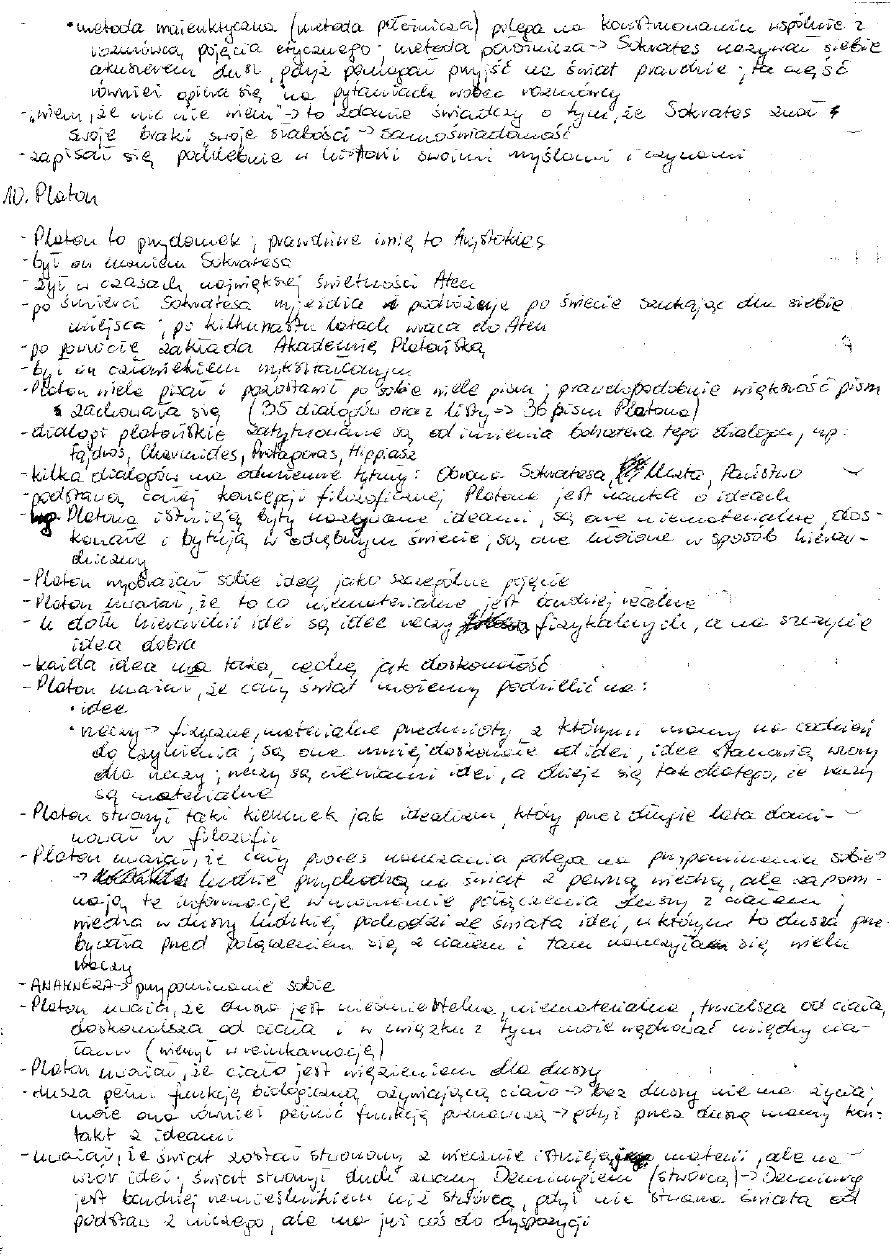 • metoda maieutyczna (metoda położnicza) polega na konstruowaniu wspólnie z
rozmówcą pojęcia etycznego; metoda położnicza → Sokrates nazywał siebie
akuszerem dusz, gdyż pomagał przyjść na świat prawdzie; ta część
również opiera się na pytaniach wobec rozmówcy
- „wiem, że nic nie wiem" → to zdanie świadczy o tym, że Sokrates znał
swoje braki, swoje słabości → samoświadomość
- zapisał się podniebnie w historii swoimi myślami i czynami
10. Platon
- Platon to przydomek; prawdziwe imię to Arystokles
- był on uczniem Sokratesa
- żył w czasach największej świetności Aten
- po śmierci Sokratesa wyjeżdża i podróżuje po świecie szukając dla siebie
miejsca; po kilkunastu latach wraca do Aten
- po powrocie zakłada Akademię Platońską
- był on człowiekiem wykształconym
- Platon wiele pisał i pozostawił po sobie wiele pism; prawdopodobnie większość pism
zachowała się (35 dialogów oraz listy → 36 pism Platona)
- dialogi platońskie zatytułowane są od imienia bohatera tego dialogu, np:
Fajdros, Charmides, Protagoras, Hippiasz
- kilka dialogów ma odmienne tytuły: Obrona Sokratesa, Uczta, Państwo
- podstawą całej koncepcji filozoficznej Platona jest nauka o ideach
- wg Platona istnieją byty nazywane ideami, są one niematerialne, dos-
konałe i bytują w odrębnym świecie; są one ułożone w sposób hierar-
chiczny
- Platon wyobrażał sobie ideę jako szczególne pojęcie
- Platon uważał, że to co niematerialne jest bardziej realne
- u dołu hierarchii idei są idee rzeczy fizykalnych, a na szczycie
idea dobra
- każda idea ma taką cechę jak doskonałość
- Platon uważał, że cały świat możemy podzielić na:
• idee
• rzeczy → fizyczne, materialne przedmioty, z którymi mamy na codzień
do czynienia; są one mniej doskonałe od idei, idee stanowią wzory
dla rzeczy; rzeczy są cieniami idei, a dzieje się tak dlatego, że rzeczy
są materialne
- Platon stworzył taki kierunek jak idealizm, który przez długie lata domi-
nował w filozofii
- Platon uważał, że cały proces nauczania polega na przypominaniu sobie →
→ ludzie przychodzą na świat z pewną wiedzą, ale zapomi-
nają te informacje w momencie połączenia duszy z ciałem;
wiedza w duszy ludzkiej pochodzi ze świata idei, w którym to dusza prze-
bywała przed połączeniem się z ciałem i tam nauczyła się wielu
rzeczy
- ANAMNEZA → przypominanie sobie
- Platon uważa, że dusza jest nieśmiertelna, niematerialna, trwalsza od ciała,
doskonalsza od ciała i w związku z tym może wędrować między cia-
łami (wierzył w reinkarnację)
- Platon uważał, że ciało jest więzieniem dla duszy
- dusza pełni funkcję biologiczną, ożywiającą ciało → bez duszy nie ma życia;
może ona również pełnić funkcję poznawczą → gdyż przez duszę mamy kon-
takt z ideami
- uważał, że świat został stworzony z wiecznie istniejącej materii, ale na
wzór idei; świat stworzył duch zwany Demiurgiem (stwórca) → Demiurg
jest bardziej rzemieślnikiem niż stwórcą, gdyż nie stwarza świata od
podstaw z niczego, ale ma już coś do dyspozycji